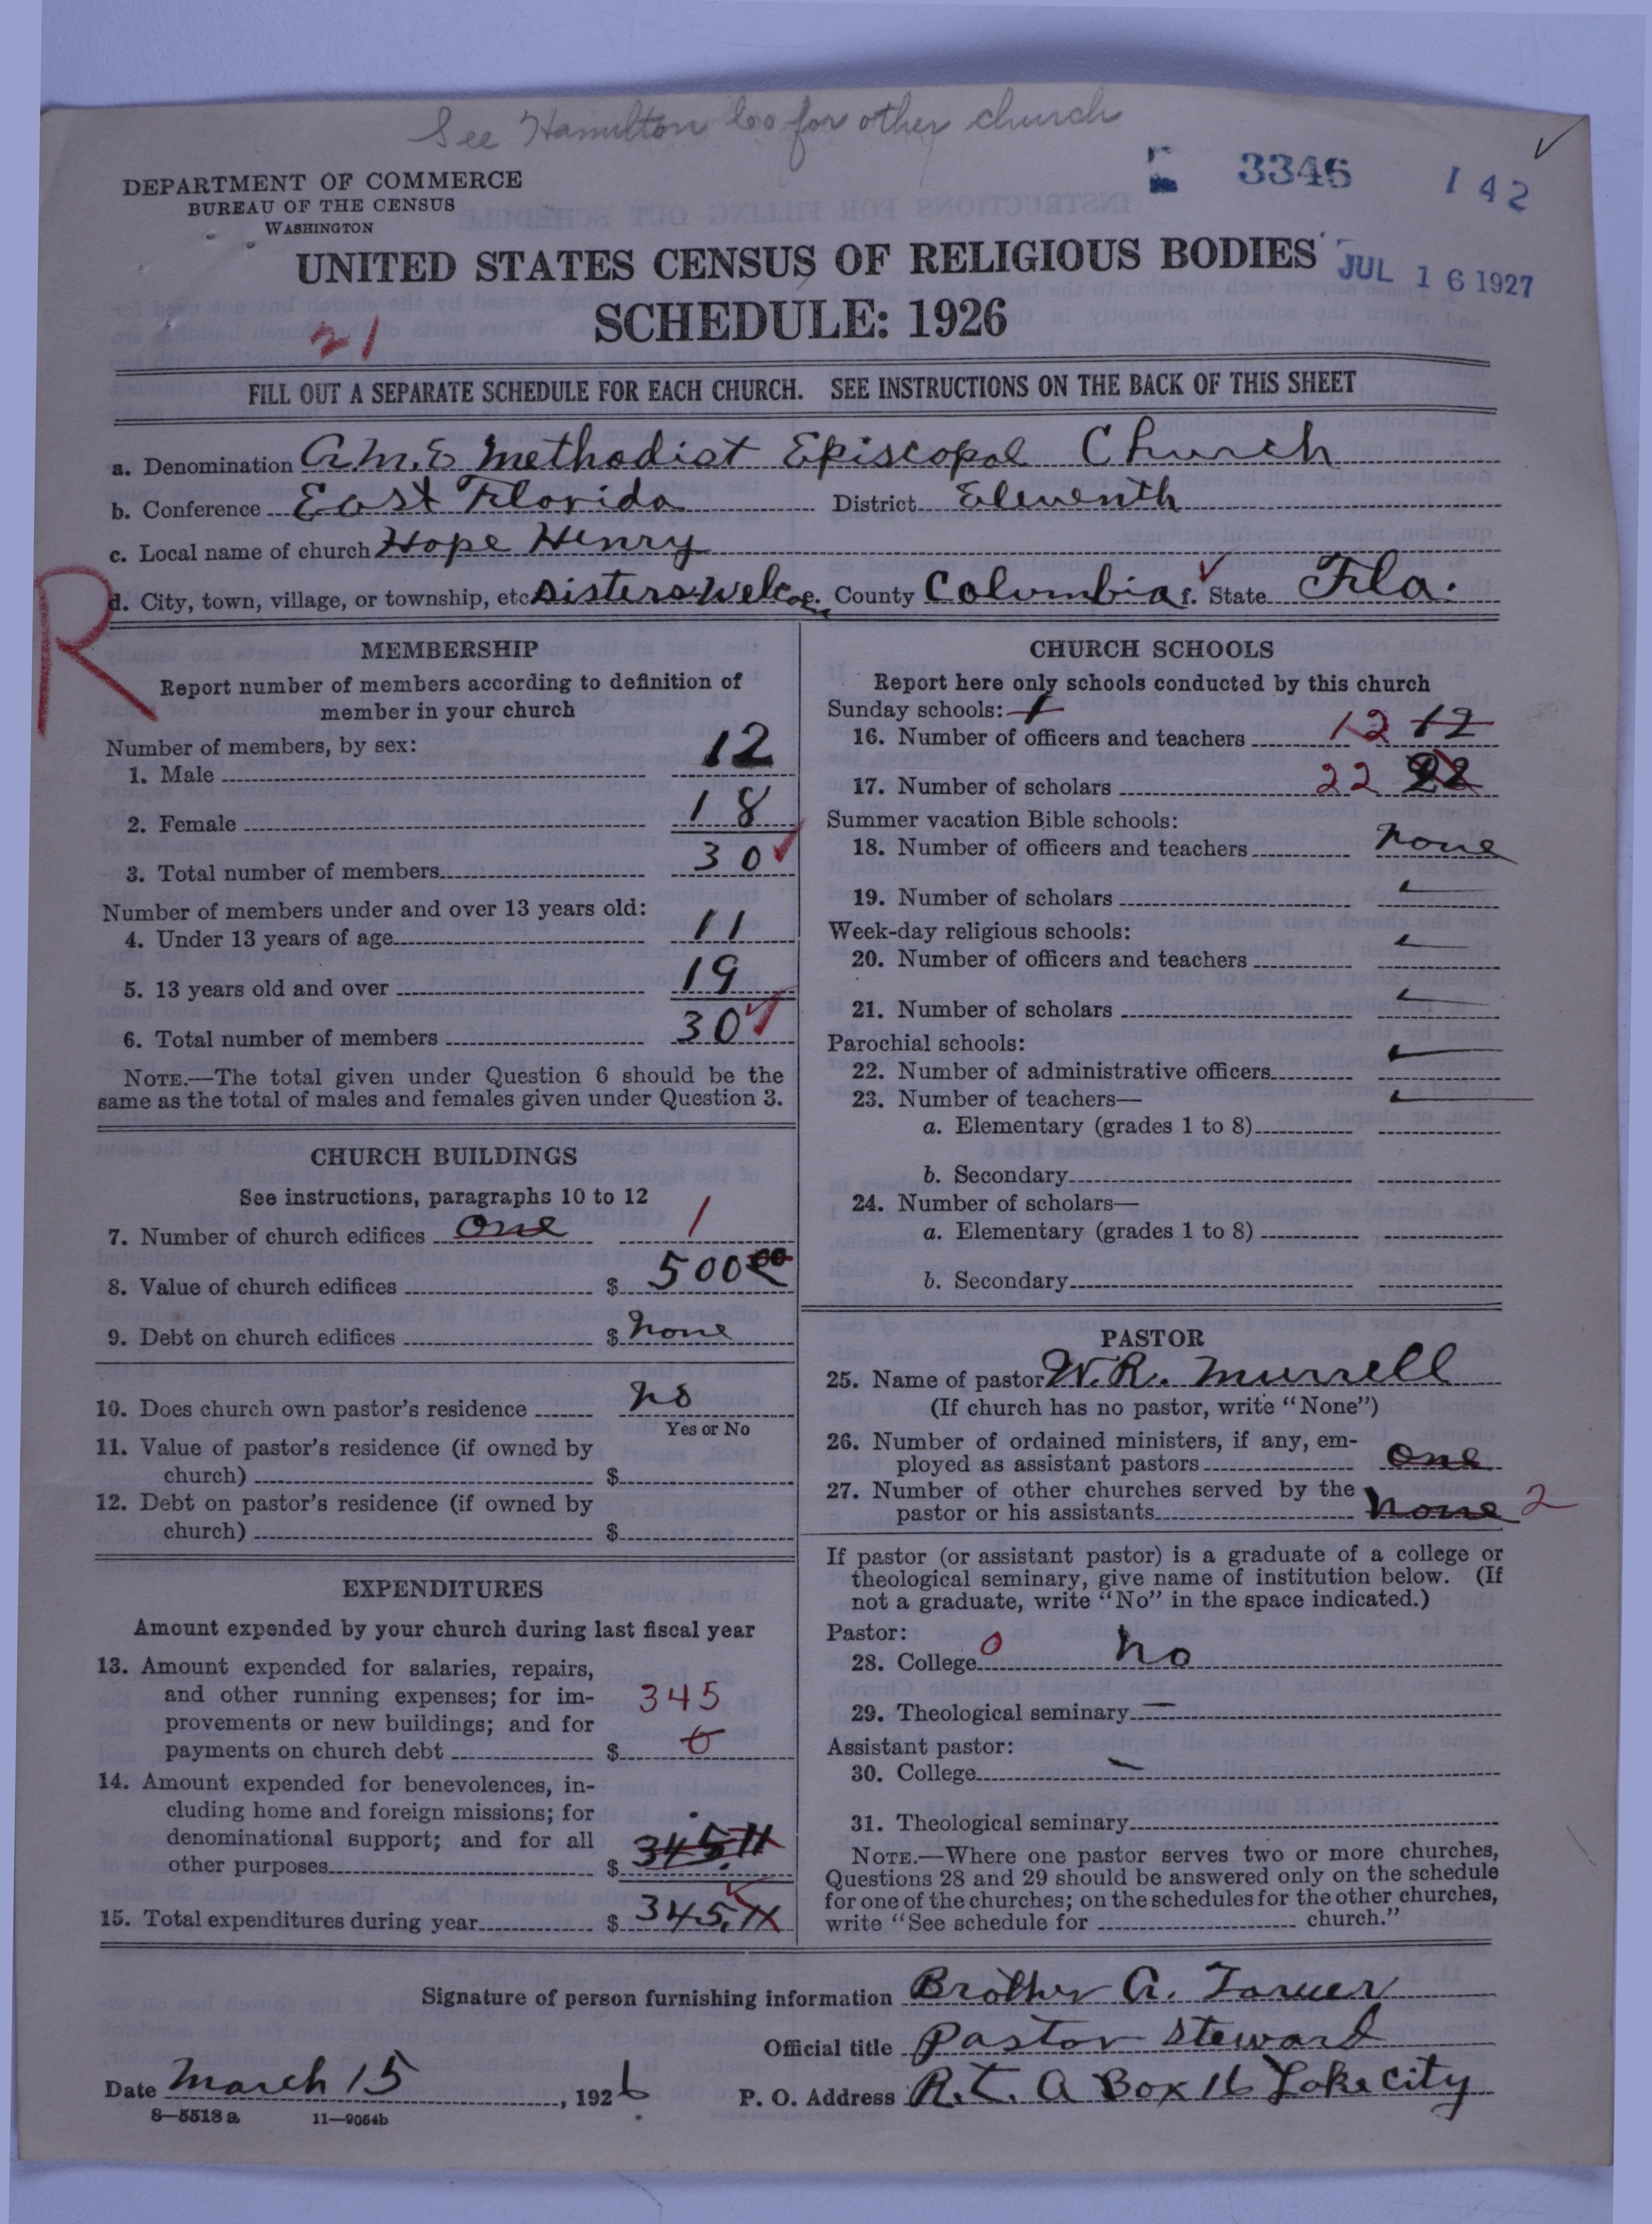 See Hamilton Co for other church
3346
142
DEPARTMENT OF COMMERCE
BUREAU OF THE CENSUS
WASHINGTON
UNITED STATES CENSUS OF RELIGIOUS BODIES
JUL 16 1927
SCHEDULE: 1926
21
FILL OUT A SEPARATE SCHEDULE FOR EACH CHURCH. SEE INSTRUCTIONS ON THE BACK OF THIS SHEET
a. Denomination A.M.E Methodist Episcopal Church
b. Conference East Florida District Eleventh
c. Local name of church Hope Henry
R
d. City, town, village, or township, etc. Sisters Welcome e. County Columbia f. State Fla.
MEMBERSHIP
Report number of members according to definition of
member in your church
Number of members, by sex:
1. Male 12
2. Female 18
3. Total number of members 30
Number of members under and over 13 years old:
4. Under 13 years of age 11
5. 13 years old and over 19
6. Total number of members 30
NOTE.—The total given under Question 6 should be the
same as the total of males and females given under Question 3.
CHURCH BUILDINGS
See instructions, paragraphs 10 to 12
7. Number of church edifices One 1
8. Value of church edifices $ 500 00
9. Debt on church edifices $ None
10. Does church own pastor's residence No
Yes or No
11. Value of pastor's residence (if owned by
church) $
12. Debt on pastor's residence (if owned by
church) $
EXPENDITURES
Amount expended by your church during last fiscal year
13. Amount expended for salaries, repairs,
and other running expenses; for im-
provements or new buildings; and for
payments on church debt $ 345
0
14. Amount expended for benevolences, in-
cluding home and foreign missions; for
denominational support; and for all
other purposes $ 345.11
15. Total expenditures during year $ 345.11
CHURCH SCHOOLS
Report here only schools conducted by this church
Sunday schools: 1
16. Number of officers and teachers 12 12
17. Number of scholars 22 22
Summer vacation Bible schools:
18. Number of officers and teachers None
19. Number of scholars
Week-day religious schools:
20. Number of officers and teachers
21. Number of scholars
Parochial schools:
22. Number of administrative officers
23. Number of teachers—
a. Elementary (grades 1 to 8)
b. Secondary
24. Number of scholars—
a. Elementary (grades 1 to 8)
b. Secondary
PASTOR
25. Name of pastor W.R. Murrell
(If church has no pastor, write "None")
26. Number of ordained ministers, if any, em-
ployed as assistant pastors One
27. Number of other churches served by the
pastor or his assistants None 2
If pastor (or assistant pastor) is a graduate of a college or
theological seminary, give name of institution below. (If
not a graduate, write "No" in the space indicated.)
Pastor:
28. College 0 No
29. Theological seminary —
Assistant pastor:
30. College —
31. Theological seminary
NOTE.—Where one pastor serves two or more churches,
Questions 28 and 29 should be answered only on the schedule
for one of the churches; on the schedules for the other churches,
write "See schedule for church."
Signature of person furnishing information Brother A.
Official title Pastor Steward
Date March 15, 1926 P. O. Address R.t. A Box 16 Lake City
8—5518 a 11—9054b